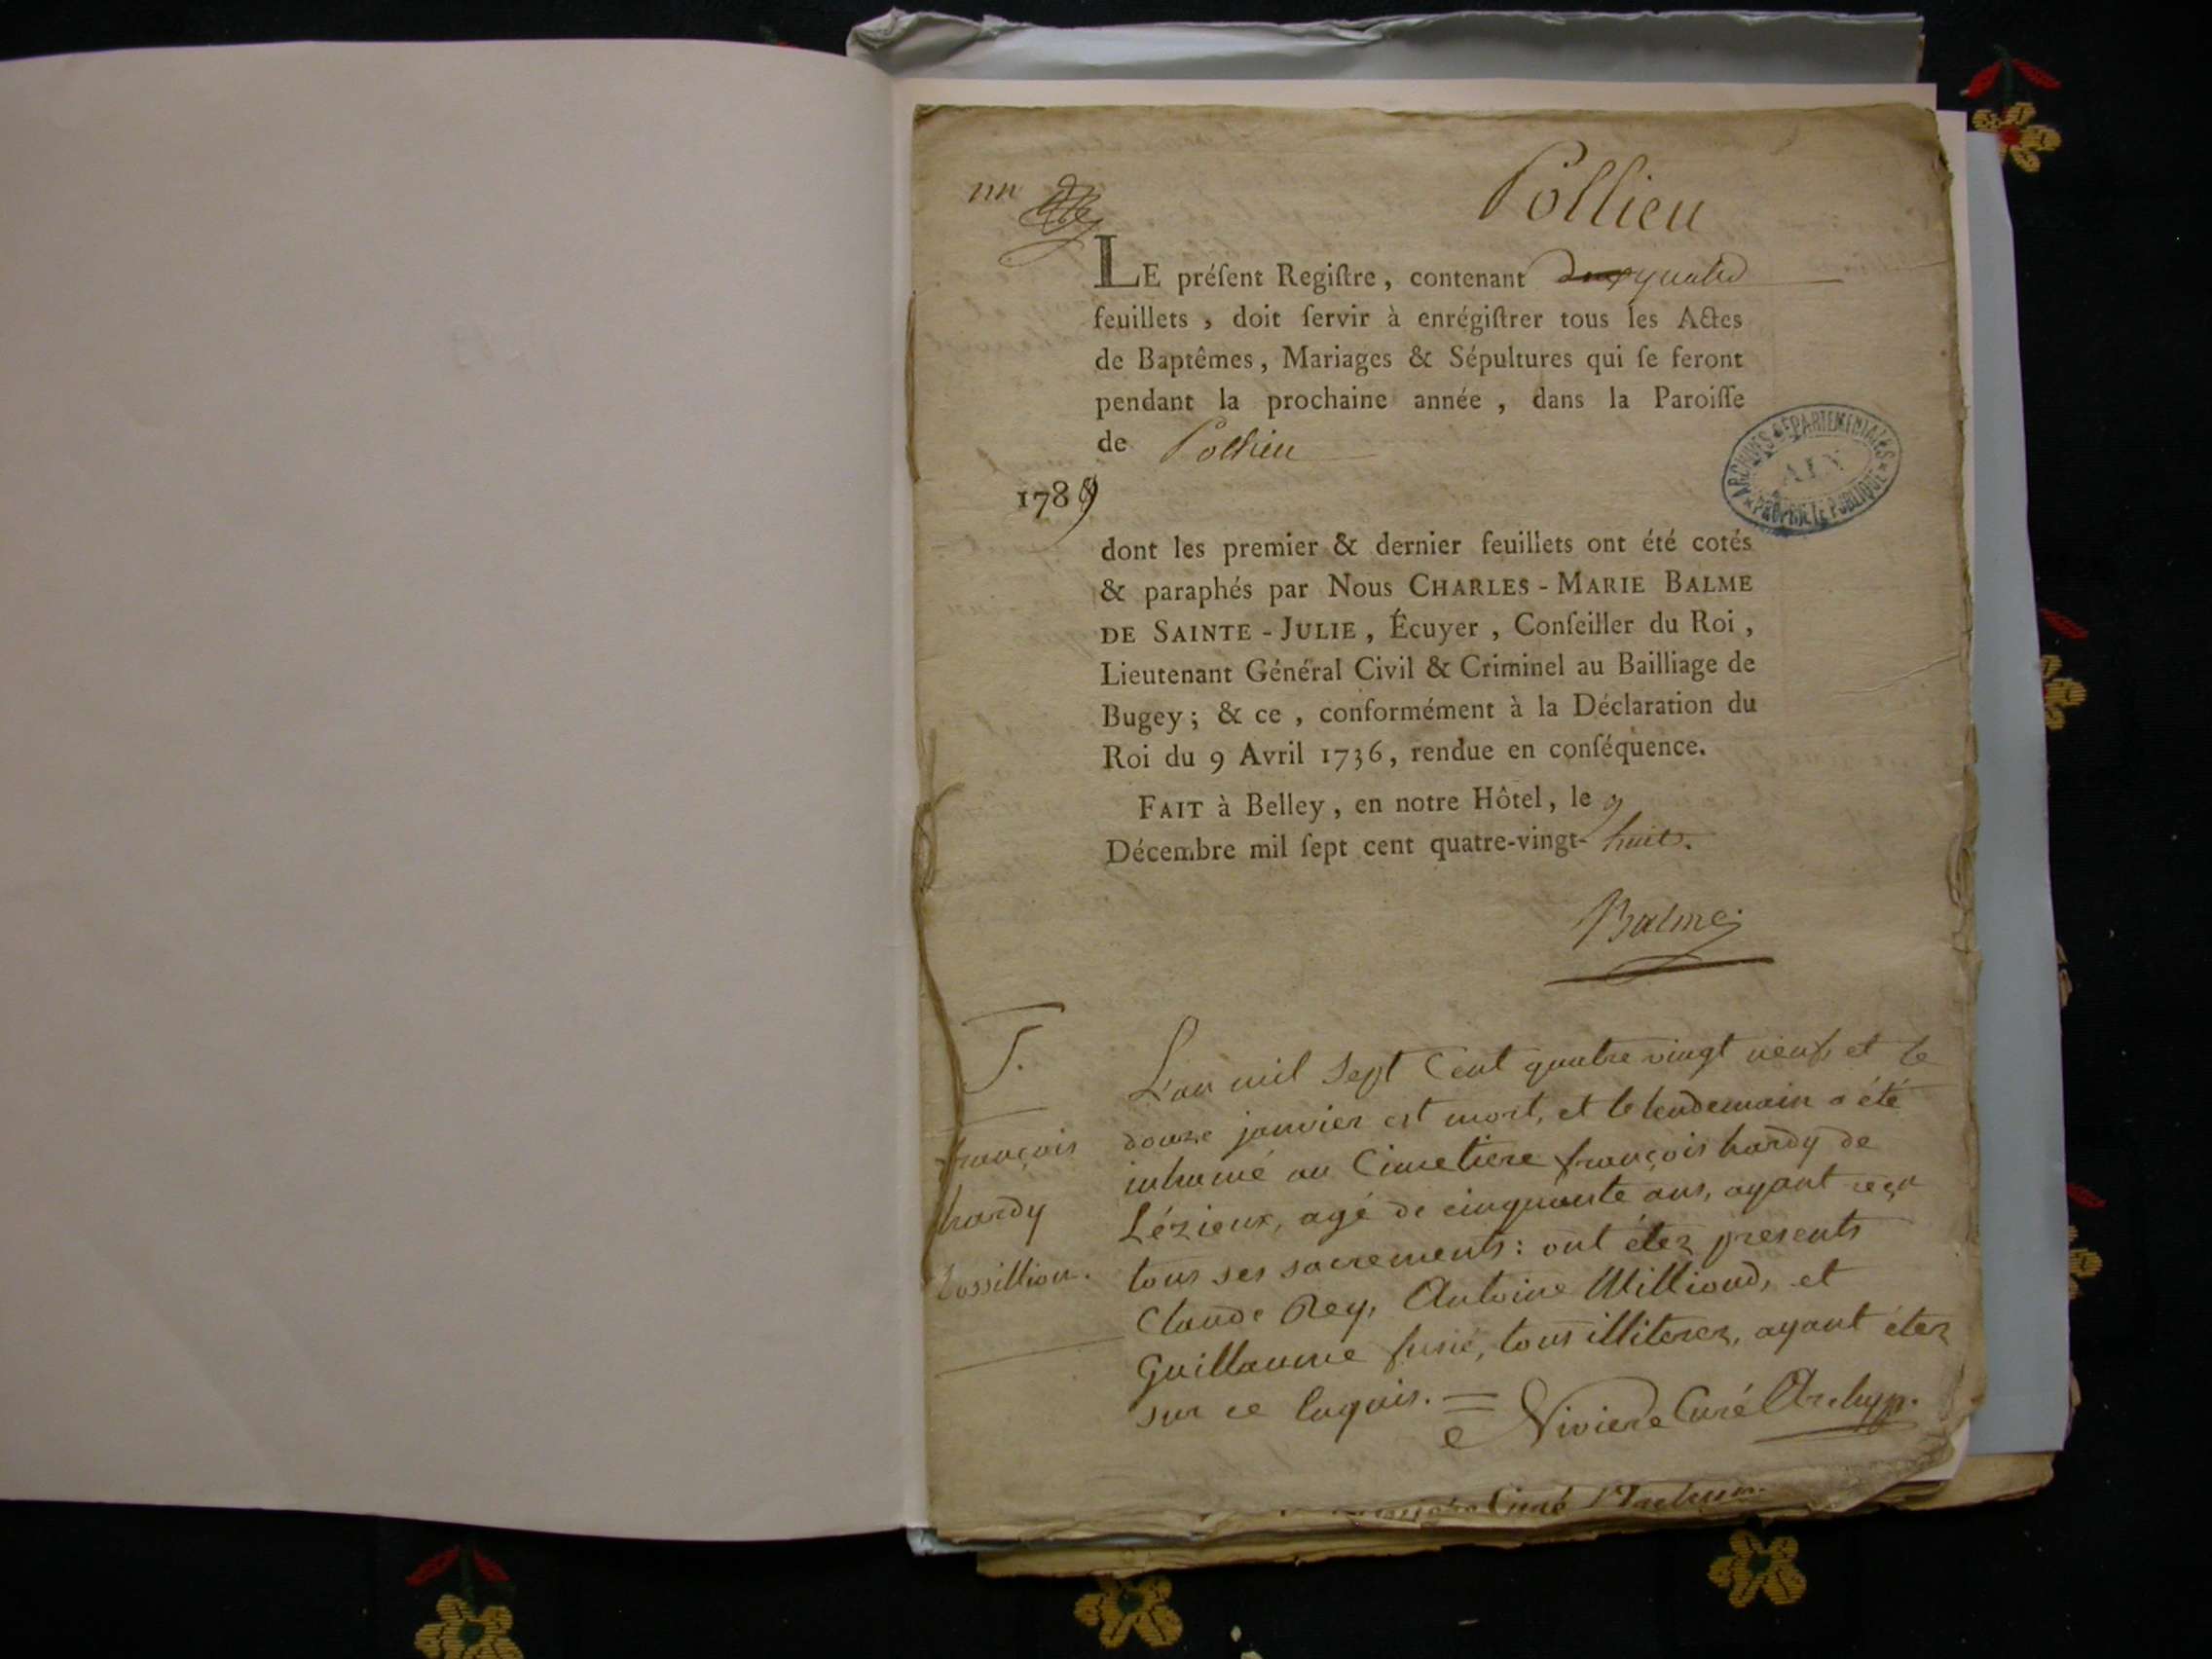 Pollieu
LE préſent Regiſtre, contenant quatre
feuillets, doit ſervir à enrégiſtrer tous les Actes
de Baptêmes, Mariages & Sépultures qui ſe feront
pendant la prochaine année, dans la Paroiſſe
de Pollieu
1789
ARCHIVES DÉPARTEMENTALES
AIN
PROPRIÉTÉ PUBLIQUE
dont les premier & dernier feuillets ont été cotés
& paraphés par Nous CHARLES-MARIE BALME
DE SAINTE-JULIE, Écuyer, Conſeiller du Roi,
Lieutenant Général Civil & Criminel au Bailliage de
Bugey; & ce, conformément à la Déclaration du
Roi du 9 Avril 1736, rendue en conſéquence.
FAIT à Belley, en notre Hôtel, le 9
Décembre mil ſept cent quatre-vingt-huit.
Balme
S.
françois
hardy
bossillion.
L'an mil sept Cent quatre vingt neuf, et le
douze janvier est mort, et le lendemain a été
inhumé au Cimetiere françois hardy de
Lézieux, agé de cinquante ans, ayant reçu
tous ses sacrements: ont étez presents
Claude Rey, Antoine Milliond, et
Guillaume fusié, tous illiterez, ayant étez
sur ce enquis. =
Riviere Curé Archyp.
Curé